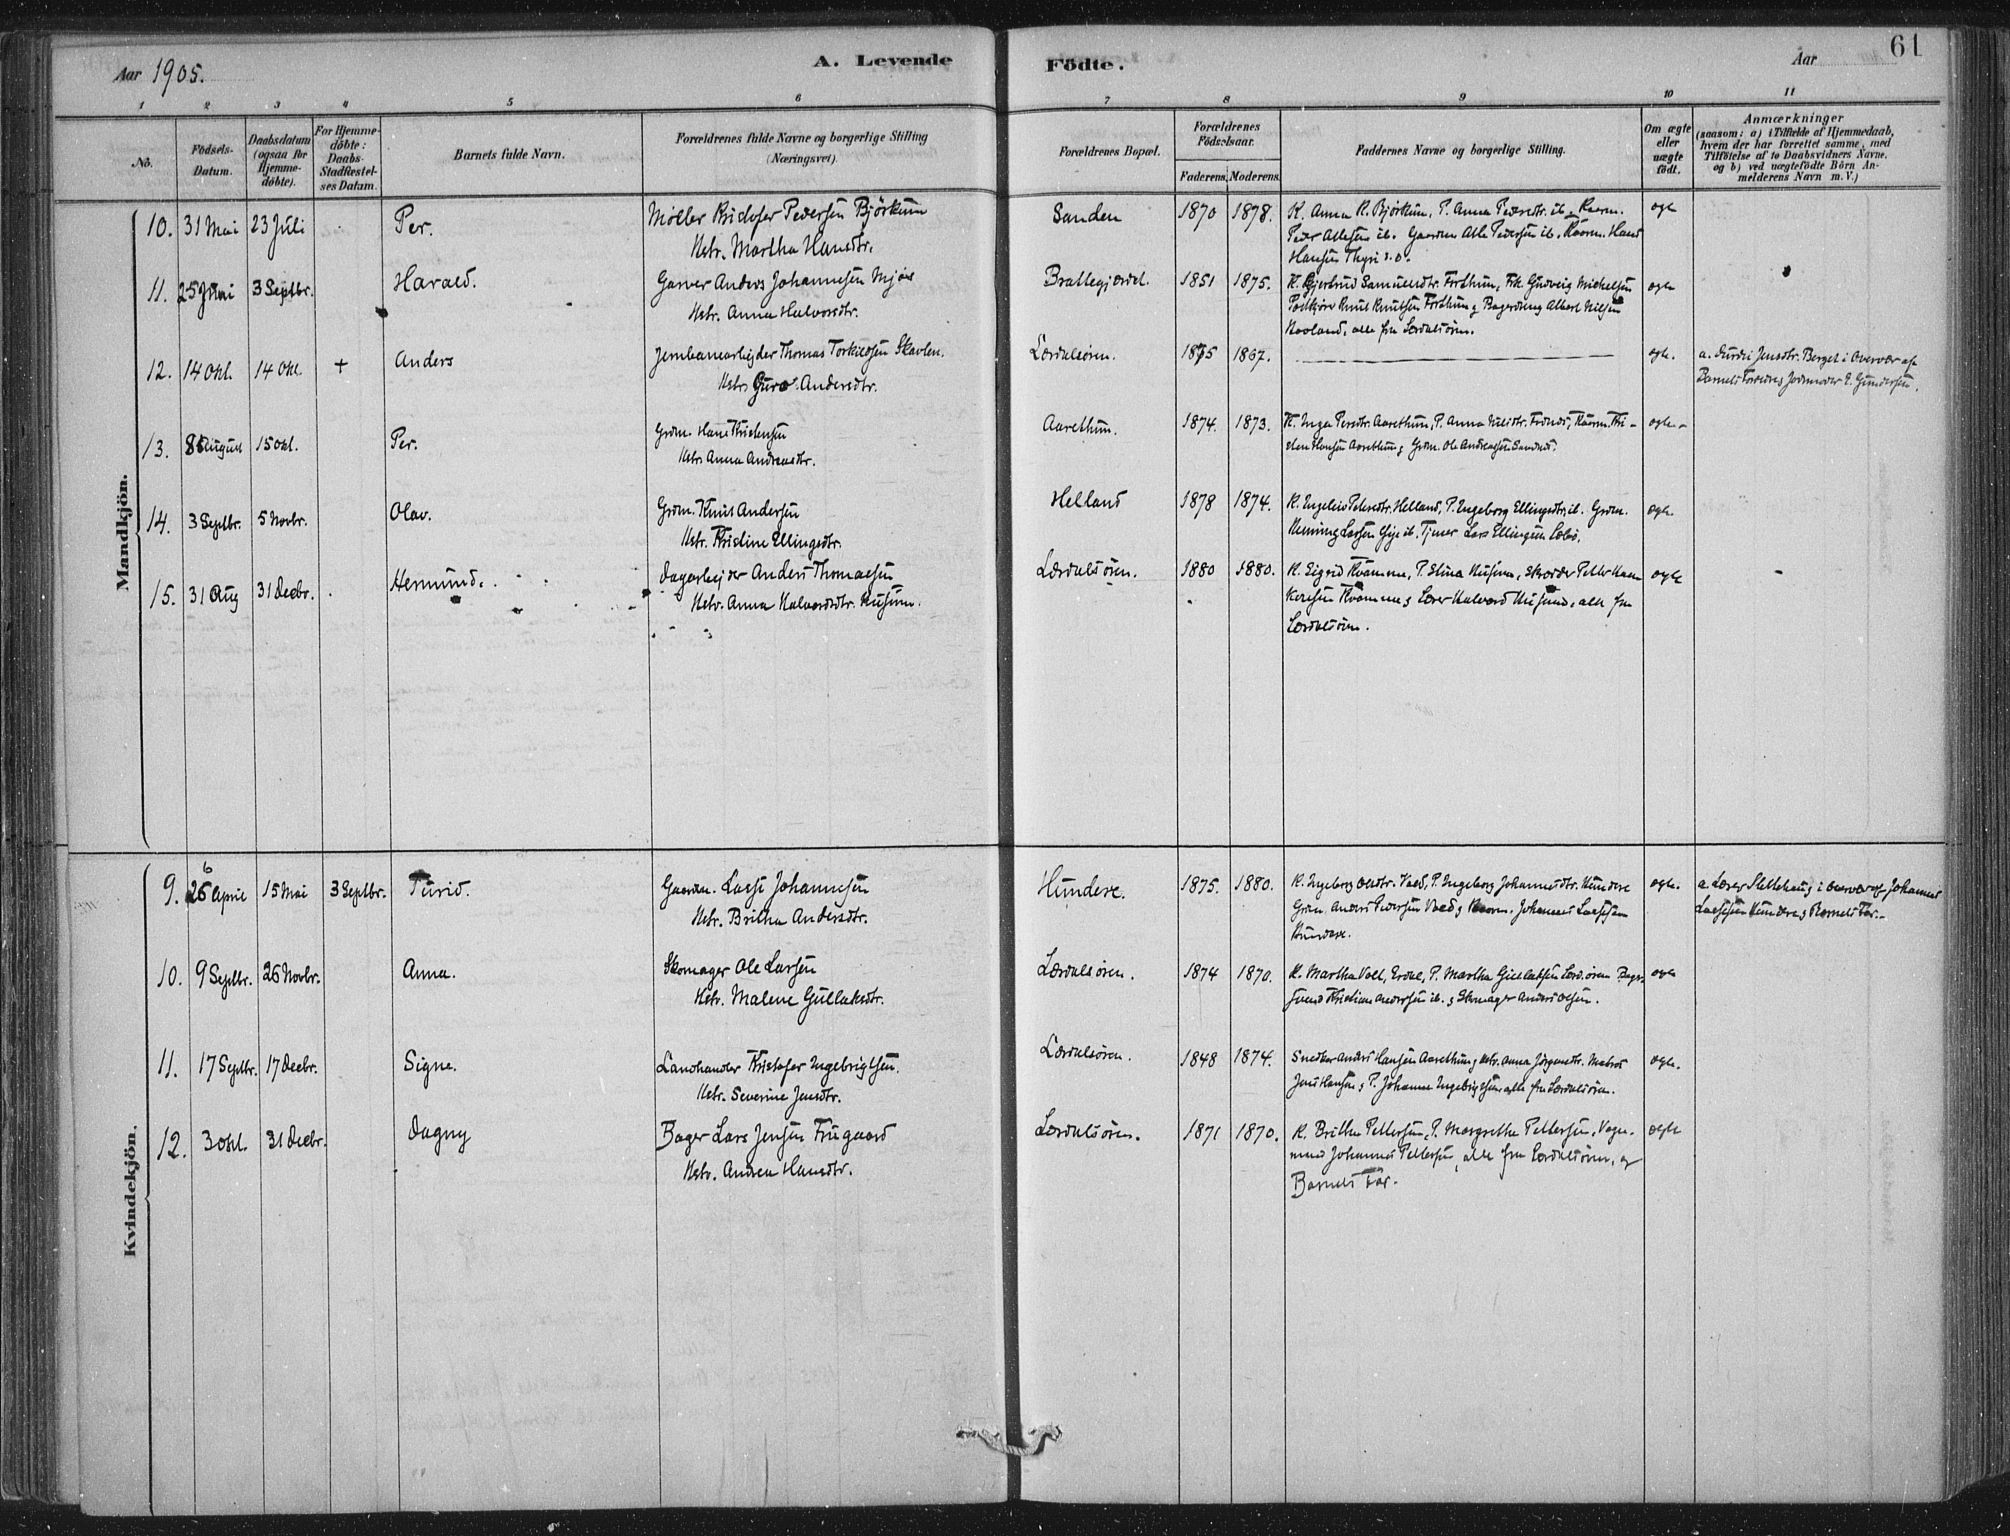 Aar 1905.
A. Levende
Födte.
Aar
61
1 2 3 4 5 6 7 8 9 10 11
No.
Födsels-
Datum.
Daabsdatum
(ogsaa for
Hjemme-
döbte).
For Hjemme-
döbte:
Daabs-
Stadfæstel-
ses Datum.
Barnets fulde Navn.
Forældrenes fulde Navne og borgerlige Stilling
(Næringsvei).
Forældrenes Bopæl.
Forældrenes
Födselsaar.
Faderens. Moderens.
Faddernes Navne og borgerlige Stilling.
Om ægte
eller
uægte
födt.
Anmærkninger
(saasom: a) i Tilfælde af Hjemmedaab,
hvem der har forrettet samme, med
Tilföielse af to Daabsvidners Navne,
og b) ved uægtefödte Börn An-
melderens Navn m. V.)
Mandkjön.
10. 31 Mai 23 Juli Per.
Møller Kristofer Pedersen Bjørkum
Hstr. Martha Hansdtr.
Sanden 1870 1878.
K. Anna K. Bjørkum, P. Anna Pedersdtr. ib.
Peder Atlesen ib. Gaardm. Atle Pedersen ib.
Hansen
ægte
11. 25 Juni 3 Septbr. Harald.
Garver Anders Johannesen Mjøs
Hstr. Anna Halvorsdtr.
Brattegjærdet. 1851 1875.
K. Gjertrud Samuelsdtr. Forthun, Frk. Gudveig Michelsen
Knut Knutsen Forthun, Albert Nielsen
Hovland, alle fra Lærdalsören.
ægte
12. 14 Okt. 14 Okt. + Anders
Jernbanearbejder Thomas Torkildsen Skavlen.
Hstr. Guro Andersdtr.
Lærdalsören. 1875 1867.
ægte.
a. Jensdtr. Berget i Overvær af
Barnets Jordmoder G. Gundersen.
13. August 15 Okt. Per.
Grdm. Hans Kristensen
Hstr. Anna Andreasdtr.
Aarethun. 1874. 1873.
K. Inga Persdtr. Aarethun, P. Anna
Hansen Aarethun, Grdm. Ole Andreassen Sandnes.
ægte
14. 3 Septbr. 5 Novbr. Olav.
Grdm. Knut Andersen
Hstr. Kristine Ellingsdtr.
Helland 1878 1874.
K. Petersdtr. Helland, P. Ingeborg Ellingsdtr. ib. Grdm.
Henning Larsen ib. Tjener Lars Ellingsen
ægte
15. 31 Aug 31 Decbr. Hermund.
Dagarbejder Anders Thomassen
Hstr. Anna Halvardsdtr. Husum.
Lærdalsören. 1880 1880.
K. Sigrid Kvamme, P. Stina Husum, Skrædder Petter
Kvamme, Lærer Halvard Husum, alle fra
Lærdalsören.
ægte
Kvindekjön.
9. 26 April 15 Mai 3 Septbr. Turid.
Gaardm. Lasse Johannesen
Hstr. Britha Andersdtr.
Hundere. 1875. 1880.
K. Ingeborg Olsdtr. Voll, P. Ingeborg Johannesdtr. Hundere
Grdm. Anders Pedersen Voll, Johannes Lassesen
Hundere.
ægte.
a. Lærer i Overvær af Johannes
Lassesen Hundere, Barnets Far.
10. 9 Septbr. 26 Novbr. Anna.
Skomager Ole Larsen
Hstr. Malene Gullaksdtr.
Lærdalsören. 1874 1870.
K. Martha Voll, Erdal, P. Martha Gullaksen Lærdsören
Kristian Andersen ib. Skomager Anders Olsen.
ægte
11. 17 Septbr. 17 Decbr. Signe.
Landhandler Kristofer Ingebrigtsen.
Hstr. Severine Jensdtr.
Lærdalsören. 1848 1874.
Snedker Anders Hansen Aarethun, Hstr. Anna Jörgensdtr. Matros
Jens Hansen, P. Johanne Ingebrigtsen, alle fra Lærdalsören.
ægte.
12. 3 Okt. 31 Decbr. Dagny
Bager Lars Jensen Frugaard
Hstr. Andrea Hansdtr.
Lærdalsören. 1871 1870.
K. Brithe Pettersen, P. Margrethe Pettersen, Vogn-
mand Johannes Pettersen, alle fra Lærdalsören, og
Barnets Far.
ægte